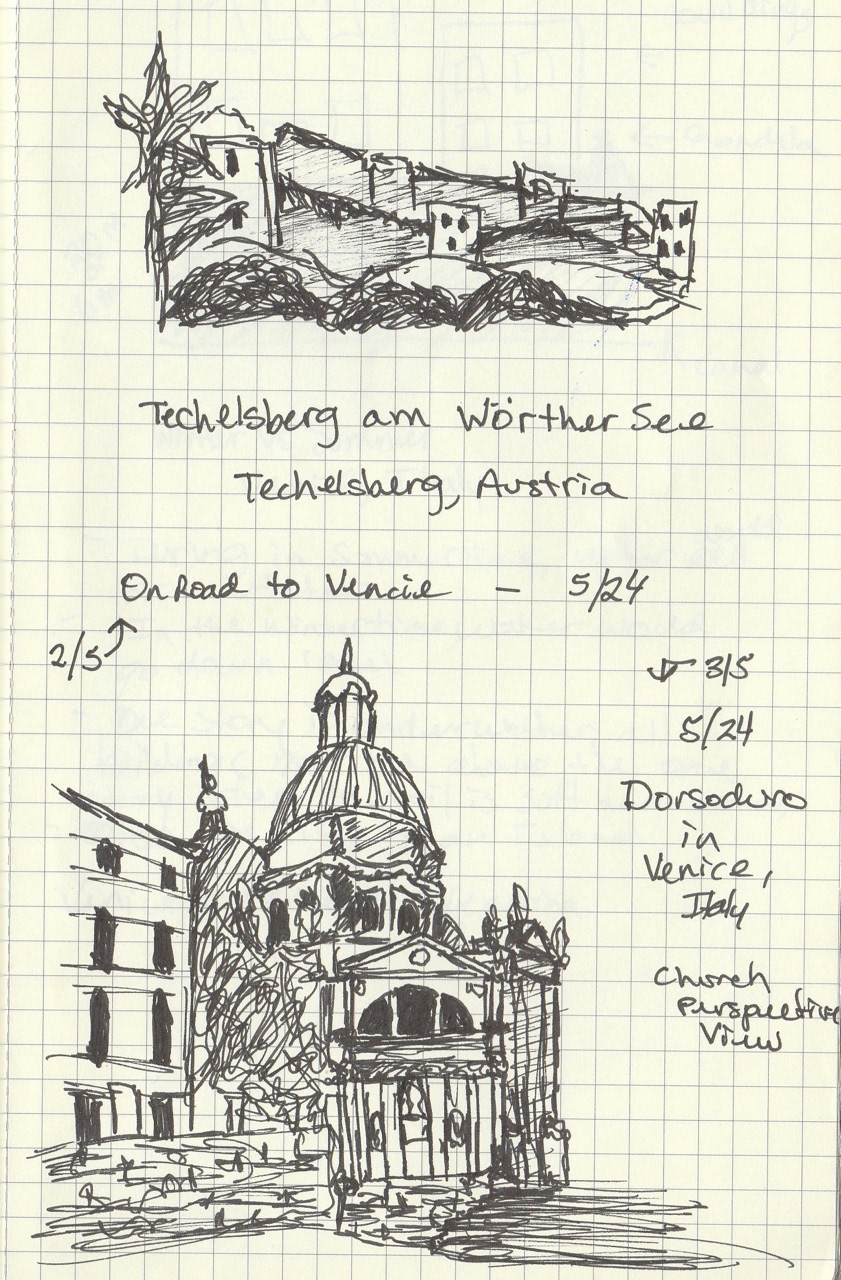 Techelsberg am Wörther See
Techelsberg, Austria
On Road to Vencie — 5/24
2/5
3/5
5/24
Dorsoduro
in
Venice,
Italy
Church
Perspective
View